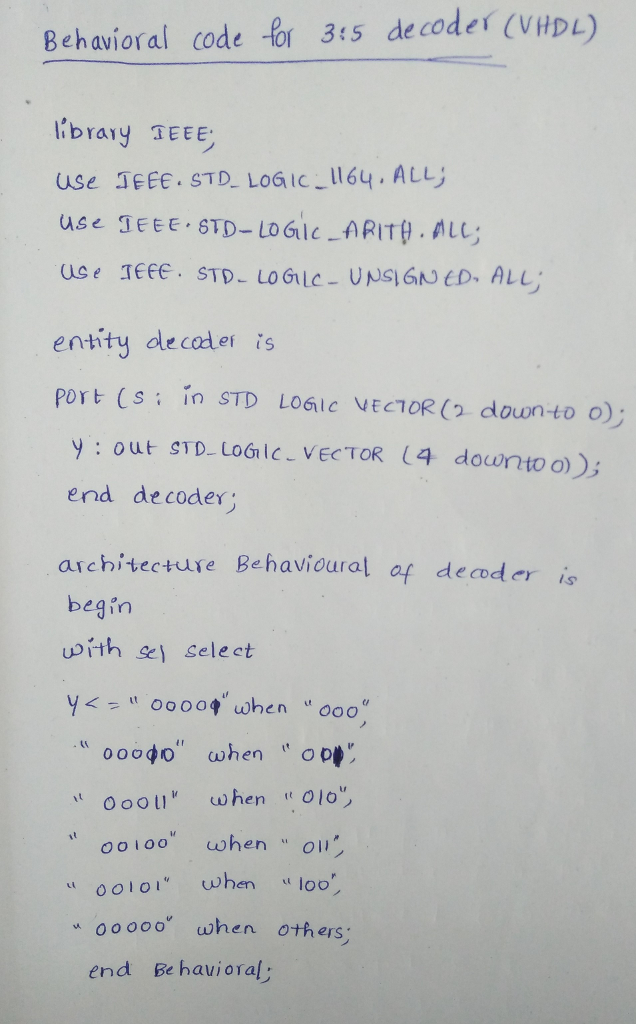 Behavioral code for 3:5 decoder (VHDL)
library IEEE;
use IEEE. STD_LOGIC_1164. ALL;
use IEEE. STD-LOGIC_ARITH. ALL;
use IEEE. STD_LOGIC_UNSIGNED. ALL;
entity decoder is
port (s: in STD LOGIC VECTOR (2 downto 0);
y : out STD_LOGIC_VECTOR (4 downto 0));
end decoder;
architecture Behavioural of decoder is
begin
with sel select
y <= "00001" when "000",
"00010" when "001",
"00011" when "010",
"00100" when "011",
"00101" when "100",
"00000" when others;
end Behavioral;